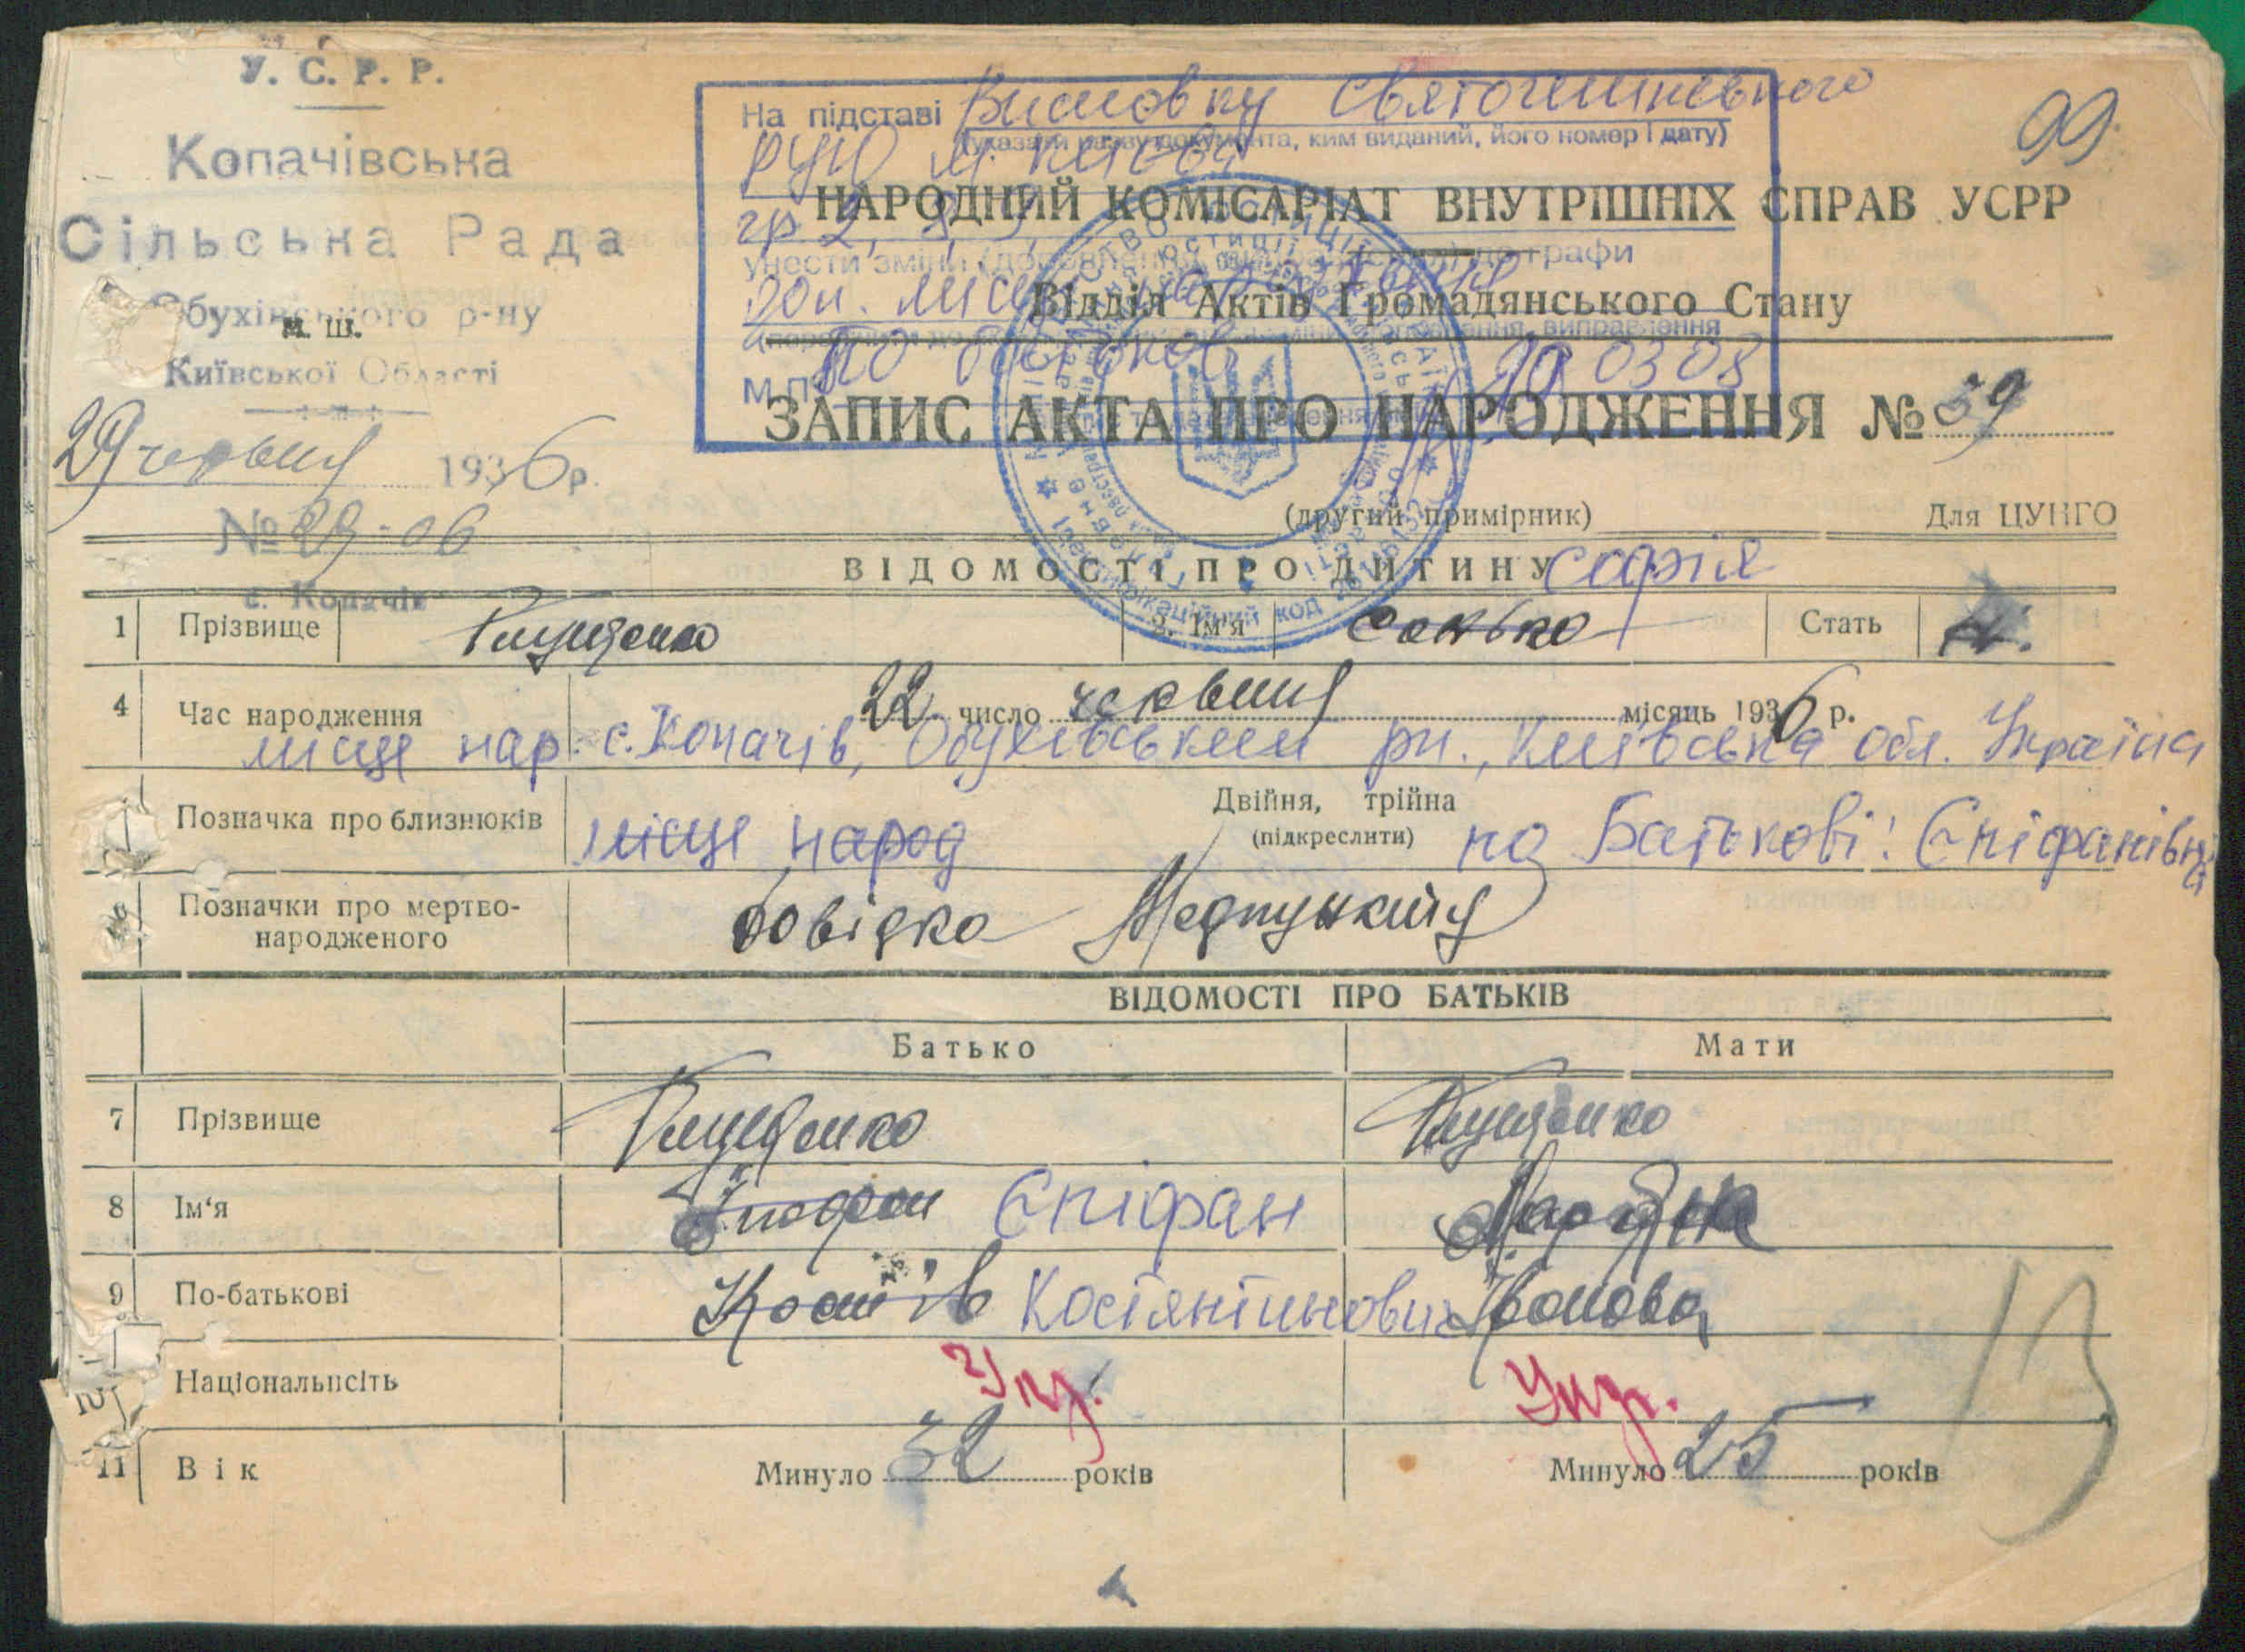 У. С. Р. Р.
Копачівська
Сільська Рада
Обухівського р-ну
м. ш.
Київської Області
29 червня 1936 р.
№ 29-06
с. Копачів
99
На підставі Висновку Святошинського
(указати назву документа, ким виданий, його номер і дату)
РУЮ м. Києва
НАРОДНИЙ КОМІСАРІАТ ВНУТРІШНІХ СПРАВ УСРР
гр 2, 8, 9,
унести зміни до графи
доп. місце народження
Відділ Актів Громадянського Стану
по батькові
М.П.
ЗАПИС АКТА ПРО НАРОДЖЕННЯ № 39
(другий примірник) Для ЦУНГО
ВІДОМОСТІ ПРО ДИТИНУ Софія
1 Прізвище Глущенко 2. Ім'я Сонько Стать
4 Час народження 22 число червня місяць 1936 р.
місце нар. с. Копачів, Обухівський рн., Київська обл. Україна
Позначка про близнюків Двійня, трійна
(підкреслити)
місце народ по Батькові: Єпіфанівна
Позначки про мертво-
народженого
довідка Медпункту
ВІДОМОСТІ ПРО БАТЬКІВ
Батько Мати
7 Прізвище Глущенко Глущенко
8 Ім'я Єпіфан
9 По-батькові Костянтинович Іванова
Національність Укр. Укр.
11 Вік Минуло 32 років Минуло 25 років
13